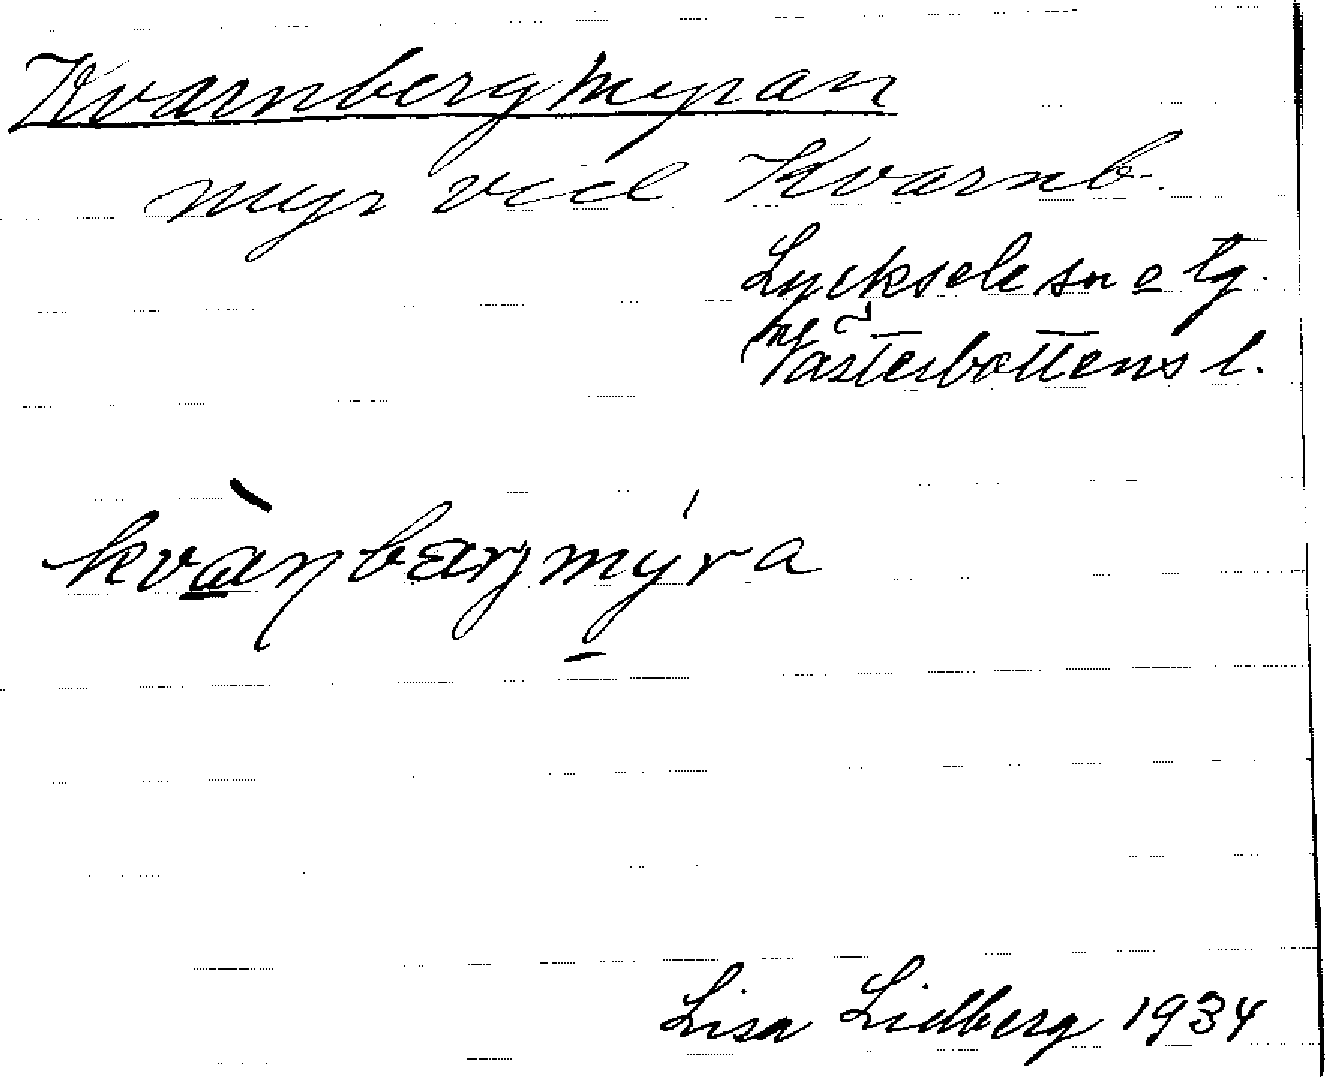 Kvarnbergmyran
myr vid Kvarnb.
Lycksele sn o tg.
Västerbottens l.
kvànbærjmýra
Lisa Lidberg 1934